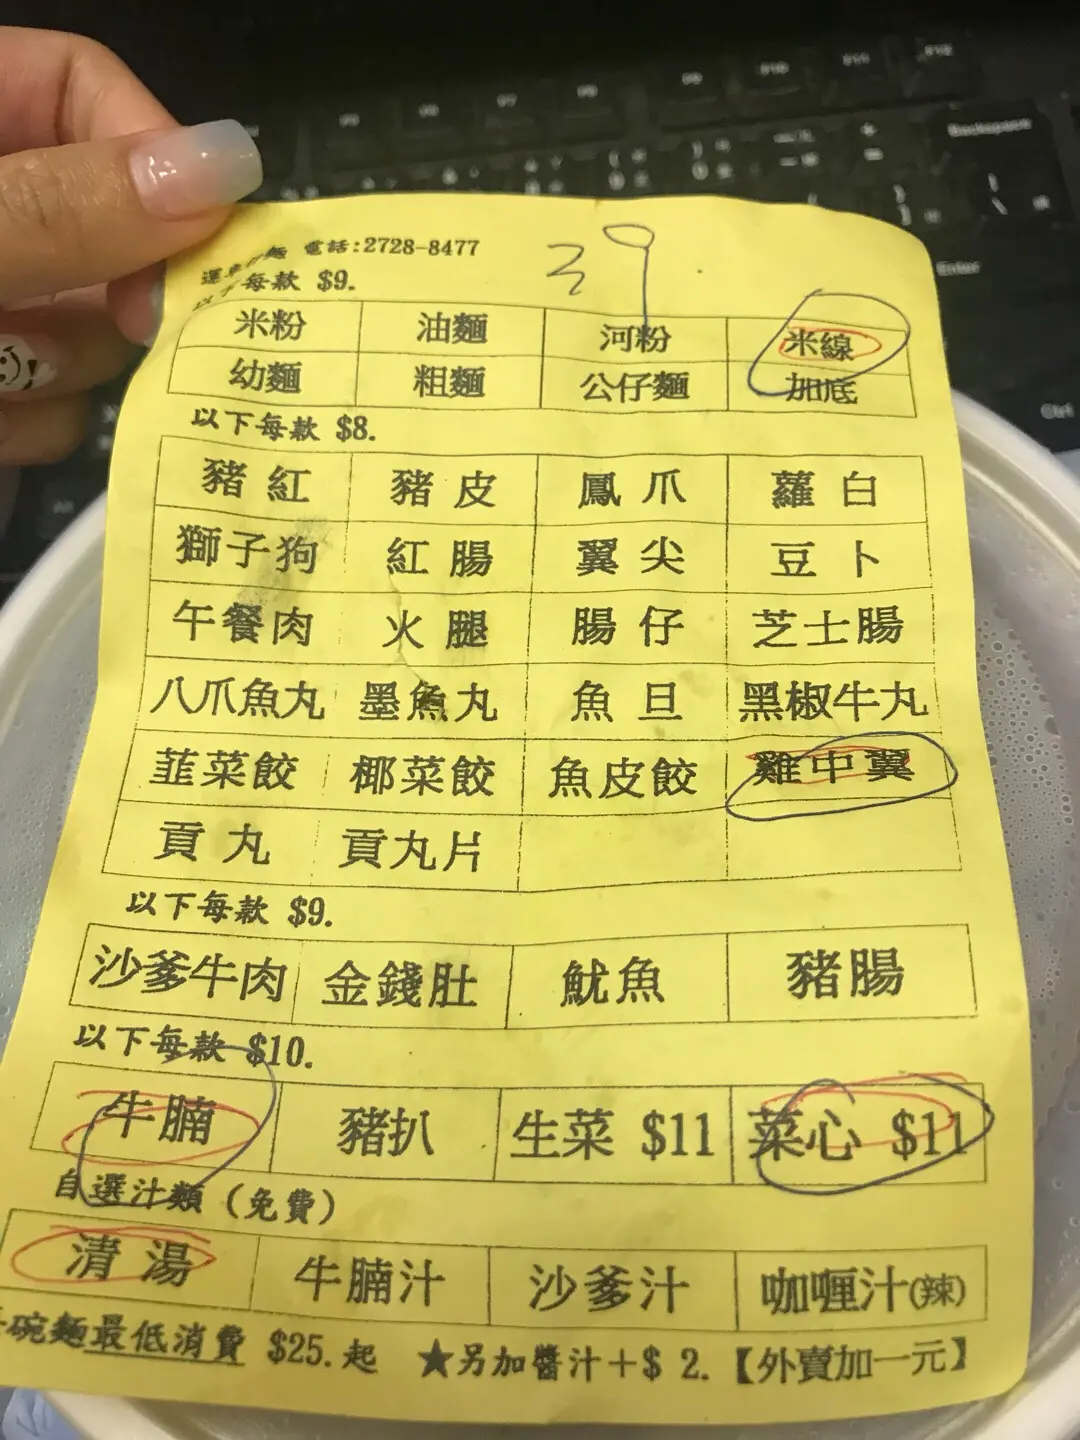 運車仔麵 電話:2728-8477
39
以下每款 $9.
米粉 油麵 河粉 米線
幼麵 粗麵 公仔麵 加底
以下每款 $8.
豬紅 豬皮 鳳爪 蘿白
獅子狗 紅腸 翼尖 豆卜
午餐肉 火腿 腸仔 芝士腸
八爪魚丸 墨魚丸 魚旦 黑椒牛丸
韮菜餃 椰菜餃 魚皮餃 雞中翼
貢丸 貢丸片
以下每款 $9.
沙爹牛肉 金錢肚 魷魚 豬腸
以下每款 $10.
牛腩 豬扒 生菜 $11 菜心 $11
自選汁類(免費)
清湯 牛腩汁 沙爹汁 咖喱汁(辣)
碗麵最低消費 $25.起 ★另加醬汁+$ 2.【外賣加一元】
F5 F6 F7 F8 F9 F10 F11 F12
Backspace
Enter
Ctrl
Alt